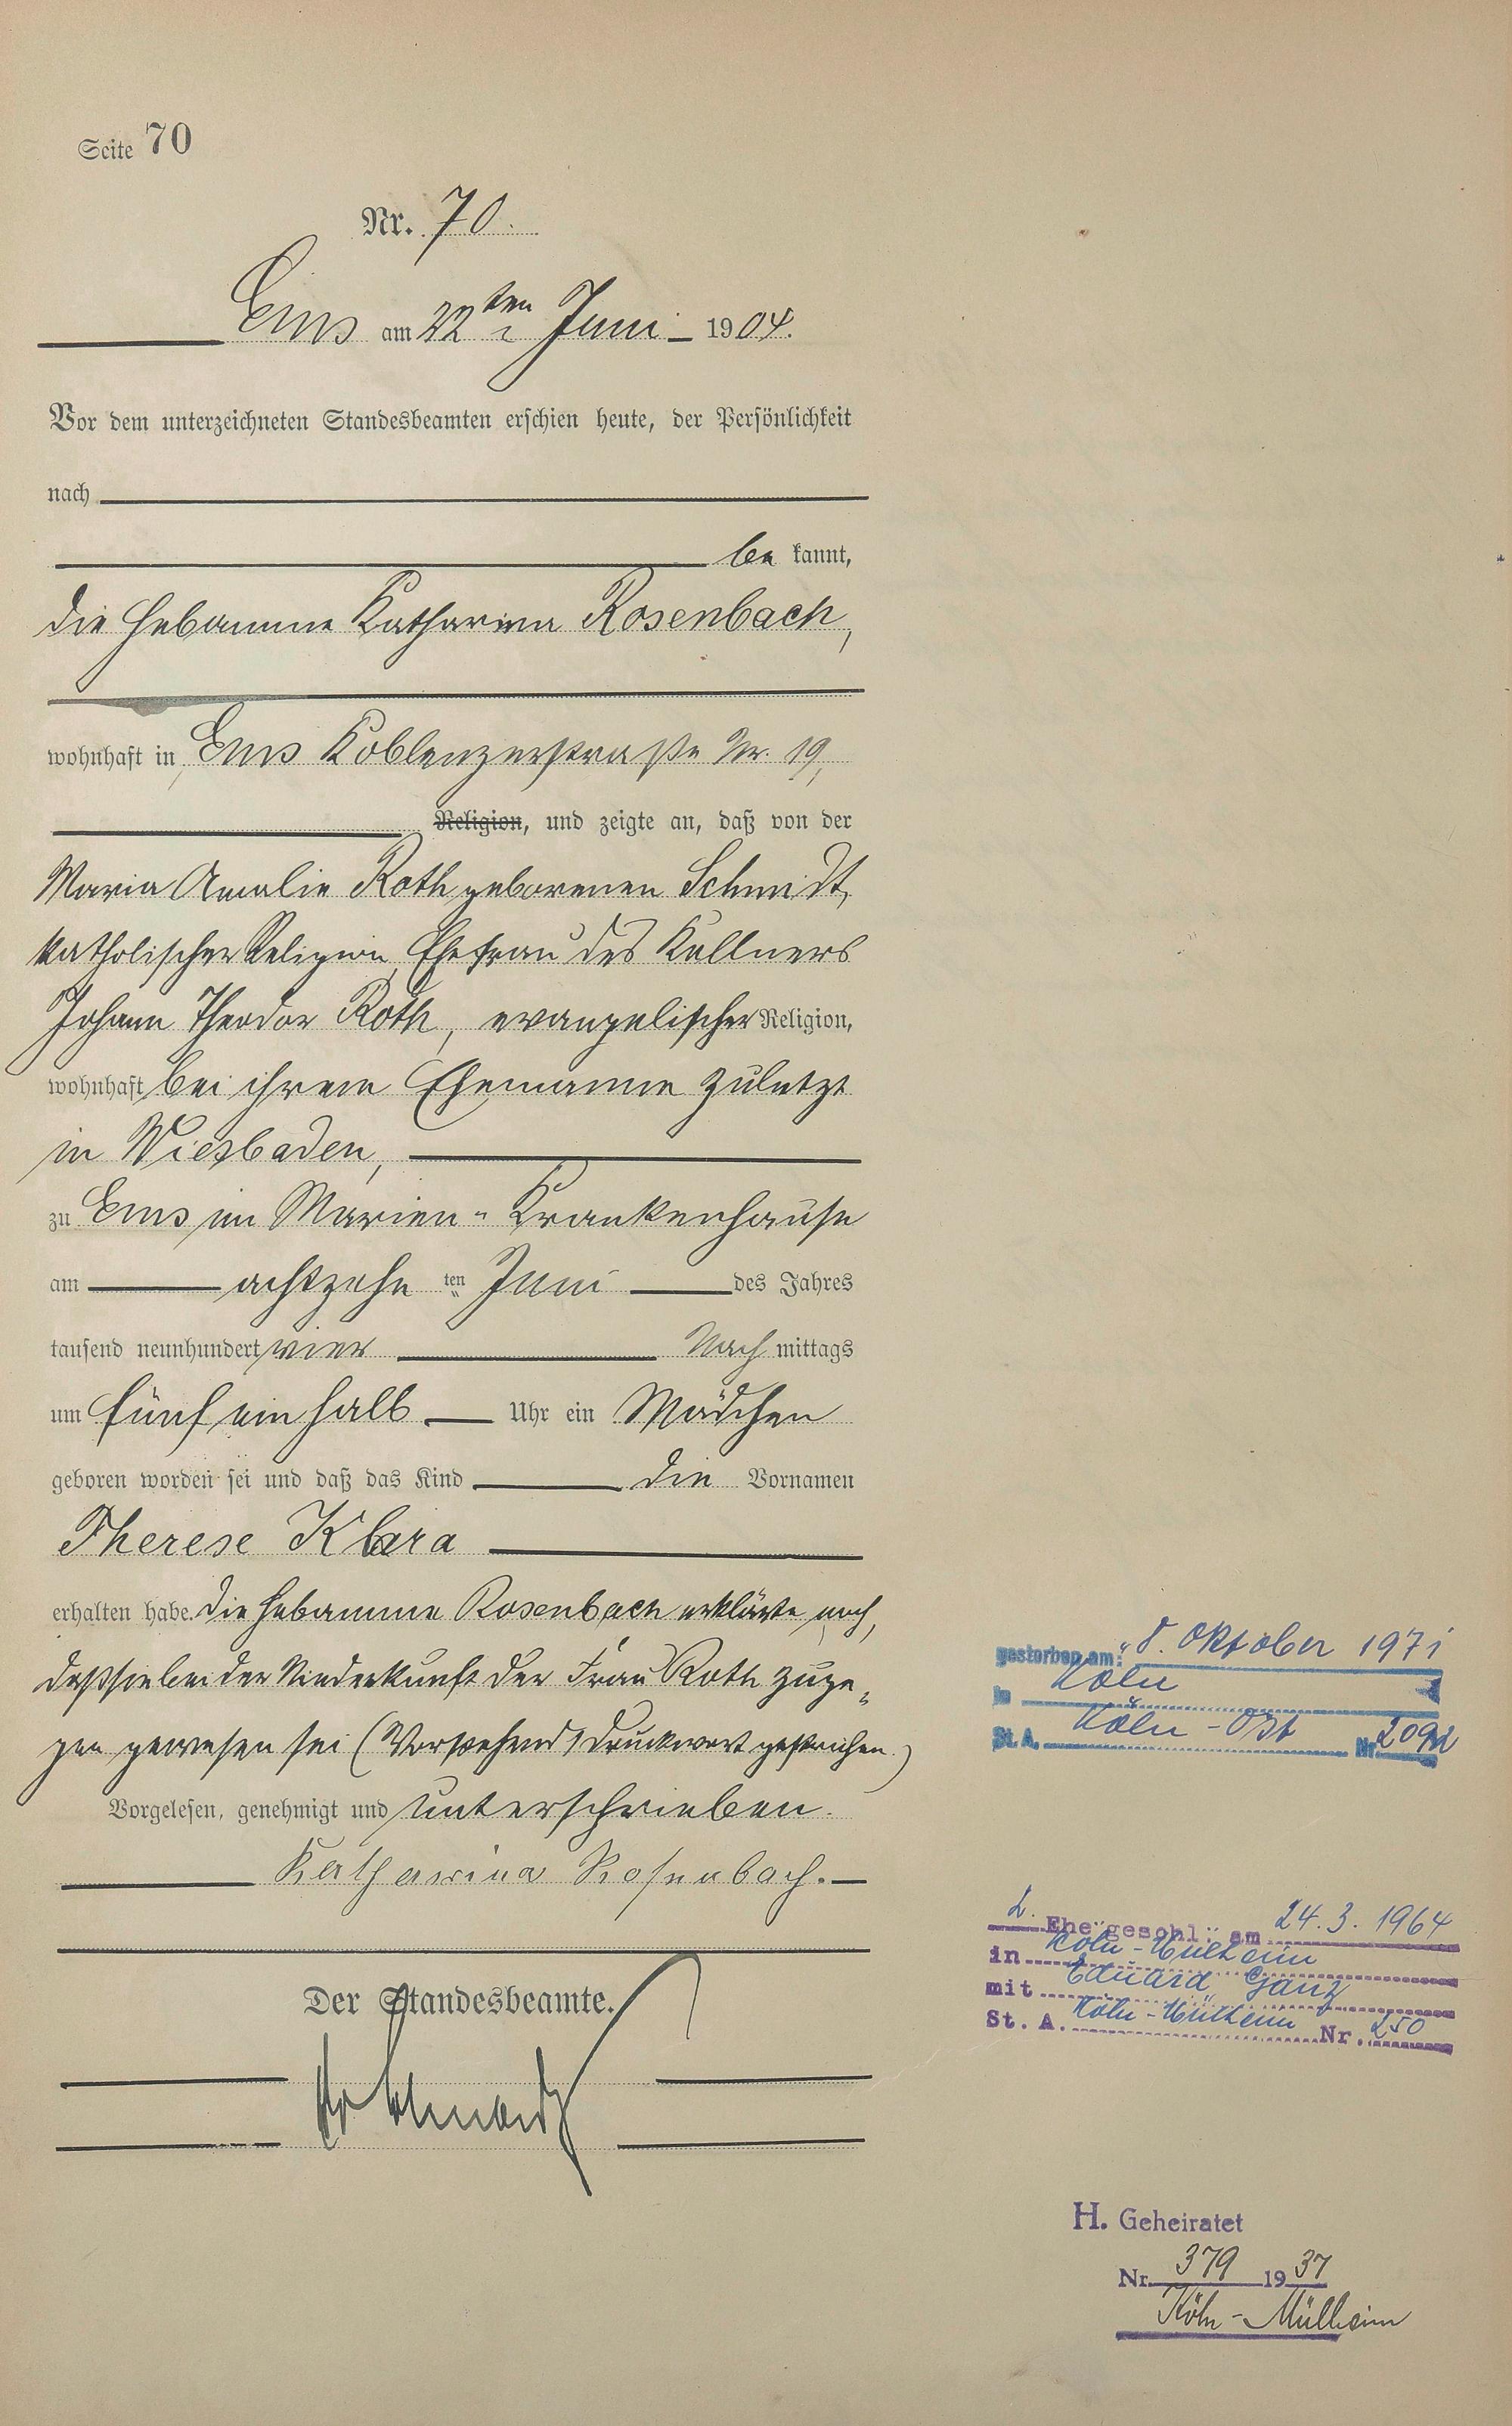 Seite 70
Nr. 70.
Ems am 22ten Juni 1904.
Vor dem unterzeichneten Standesbeamten erschien heute, der Persönlichkeit
nach
be kannt,
die Hebamme Katharina Rosenbach,
wohnhaft in Ems Koblenzerstraße Nr. 19,
Religion, und zeigte an, daß von der
Maria Amalie Roth geborenen Schmidt,
katholischer Religion, Ehefrau des Kellners
Johann Theodor Roth, evangelischer Religion,
wohnhaft bei ihrem Ehemanne zuletzt
in Wiesbaden,
zu Ems im Marien-Krankenhause
am achtzehn ten Juni des Jahres
tausend neunhundert vier Nach mittags
um fünf einhalb Uhr ein Mädchen
geboren worden sei und daß das Kind die Vornamen
Therese Klara
erhalten habe. Die Hebamme Rosenbach erklärte noch,
daß sie bei der Niederkunft der Frau Roth zuge-
gen gewesen sei (Vorstehend 1 Druckwort gestrichen.)
Vorgelesen, genehmigt und unterschrieben.
Katharina Rosenbach.
Der Standesbeamte.
gestorben am: 8. Oktober 1971
in Köln
St. A. Köln-Ost Nr. 2092
2. Ehe geschl. am 24.3.1964
in Köln-Mülheim
mit Eduard Ganz
St. A. Köln-Mülheim Nr. 250
H. Geheiratet
Nr. 379 1937
Köln-Mülheim